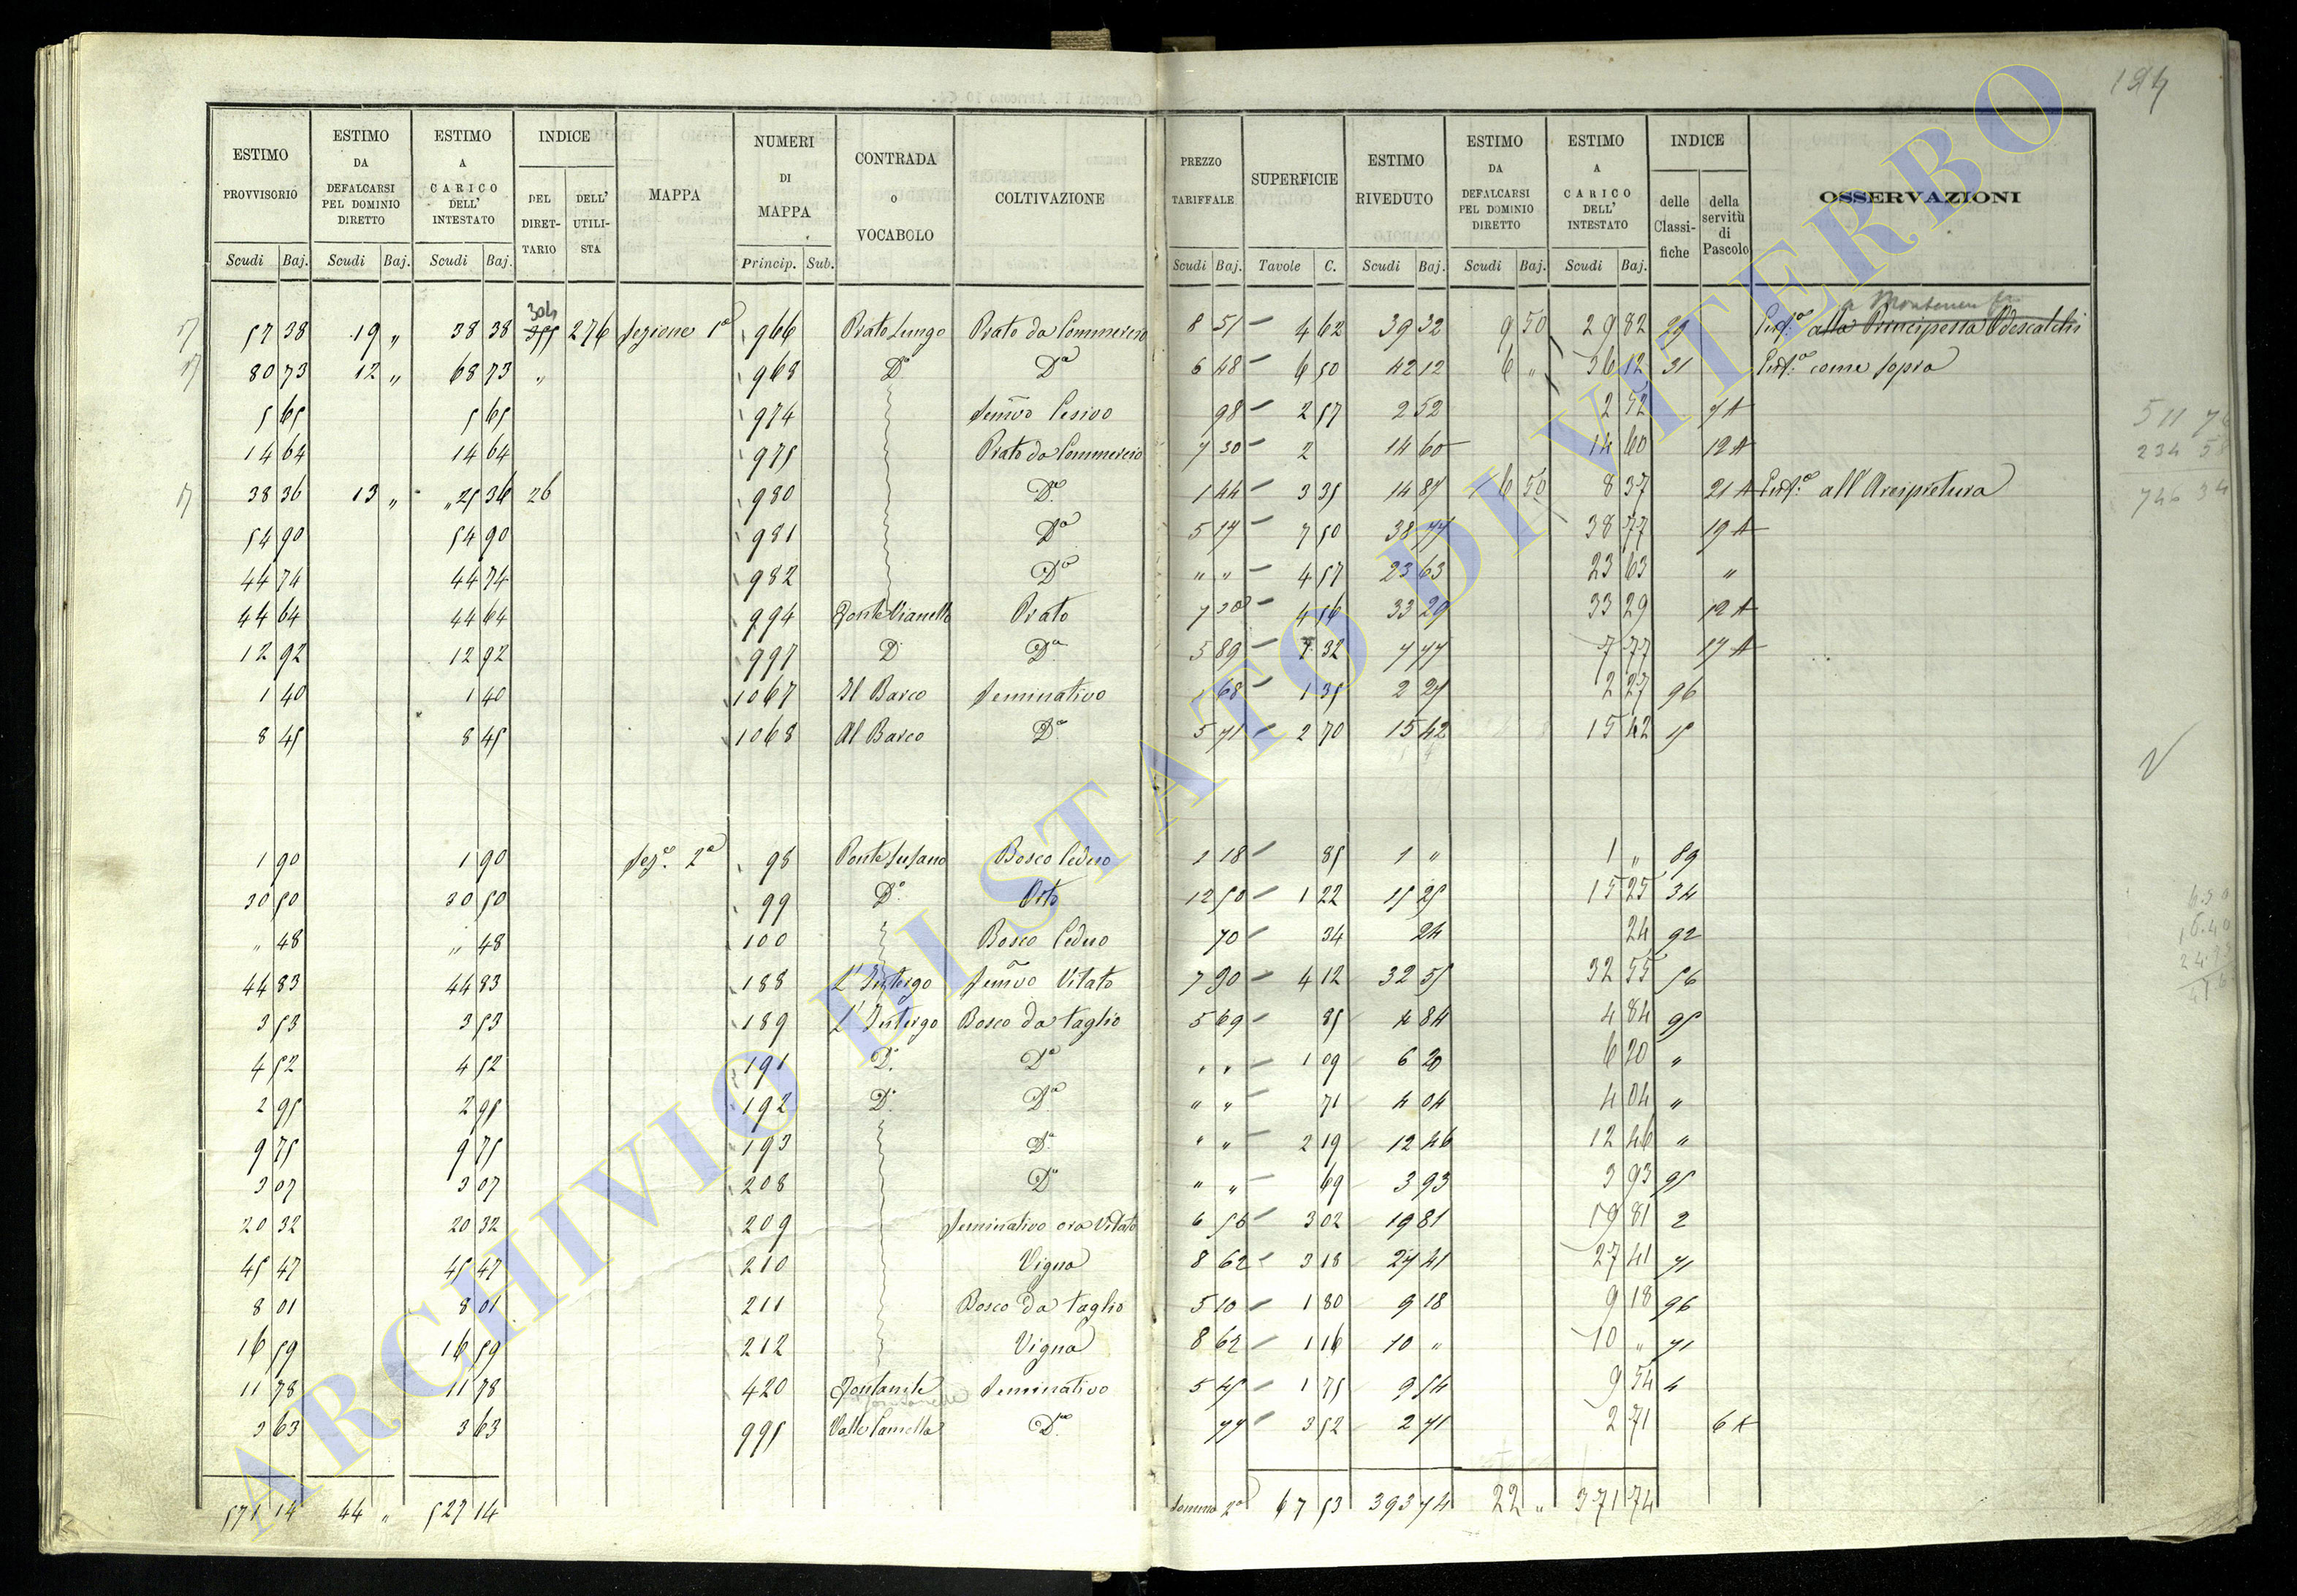 194
ESTIMO PROVVISORIO | ESTIMO DA DEFALCARSI PEL DOMINIO DIRETTO | ESTIMO A CARICO DELL' INTESTATO | INDICE DEL DIRETTARIO | DELL' UTILISTA | MAPPA | NUMERI DI MAPPA | CONTRADA O VOCABOLO | COLTIVAZIONE | PREZZO TARIFFALE | SUPERFICIE | ESTIMO RIVEDUTO | ESTIMO DA DEFALCARSI PEL DOMINIO DIRETTO | ESTIMO A CARICO DELL' INTESTATO | INDICE delle Classifiche | della servitù di Pascolo | OSSERVAZIONI
Scudi Baj. | Scudi Baj. | Scudi Baj. | Princip. Sub. | Scudi Baj. | Tavole C. | Scudi Baj. | Scudi Baj. | Scudi Baj.
304
57 38 | 19 „ | 38 38 | 355 | 276 | Sezione 1a | 966 | Prato Lungo | Prato da Commercio | 8 51 | 4 62 | 39 32 | 9 50 | 29 82 | 29 | Enfa alla Principessa Odescalchi
80 73 | 12 „ | 68 73 | „ | 968 | Do | Da | 6 48 | 6 50 | 42 12 | 6 „ | 36 12 | 31 | Enfa come sopra
5 65 | 5 65 | 974 | Semvo Cesivo | 98 | 2 57 | 2 52 | 2 52 | 7 A
14 64 | 14 64 | 975 | Prato da Commercio | 7 30 | 2 | 14 60 | 14 60 | 12 A
38 36 | 13 „ | 25 36 | 26 | 980 | Do | 1 44 | 3 35 | 14 87 | 6 50 | 8 37 | 21 A | Enfa all'Arcipretura
54 90 | 54 90 | 981 | Do | 5 17 | 7 50 | 38 77 | 38 77 | 19 A
44 74 | 44 74 | 982 | Do | „ „ | 4 57 | 23 63 | 23 63 | „
44 64 | 44 64 | 994 | Fonte Vianello | Prato | 7 30 | 4 56 | 33 29 | 33 29 | 12 A
12 92 | 12 92 | 997 | D | Da | 5 89 | 1 32 | 7 77 | 7 77 | 17 A
1 40 | 1 40 | 1067 | Il Barco | Seminativo | 1 68 | 1 35 | 2 27 | 2 27 | 96
8 45 | 8 45 | 1068 | Al Barco | Do | 5 71 | 2 70 | 15 42 | 15 42 | 15
1 90 | 1 90 | Seze 2a | 98 | Ponte Susano | Bosco Ceduo | 1 18 | 85 | 1 „ | 1 „ | 89
30 50 | 30 50 | 99 | Do | Orto | 12 50 | 1 22 | 15 25 | 15 25 | 34
„ 48 | „ 48 | 100 | Bosco Ceduo | 70 | 34 | 24 | 24 | 92
44 83 | 44 83 | 188 | L'Intergo | Semvo Vitato | 7 90 | 4 12 | 32 55 | 32 55 | 56
3 53 | 3 53 | 189 | L'Intergo | Bosco da taglio | 5 69 | 85 | 4 84 | 4 84 | 95
4 52 | 4 52 | 191 | D. | Do | „ „ | 1 09 | 6 20 | 6 20 | „
2 95 | 2 95 | 192 | D. | Do | „ „ | 71 | 4 04 | 4 04 | „
9 75 | 9 75 | 193 | Do | „ „ | 2 19 | 12 46 | 12 46 | „
3 07 | 3 07 | 208 | Do | „ „ | 69 | 3 93 | 3 93 | 95
20 32 | 20 32 | 209 | Seminativo ora Vitato | 6 56 | 3 02 | 19 81 | 19 81 | 2
45 47 | 45 47 | 210 | Vigna | 8 62 | 3 18 | 27 41 | 27 41 | 71
8 01 | 8 01 | 211 | Bosco da taglio | 5 10 | 1 80 | 9 18 | 9 18 | 96
16 59 | 16 59 | 212 | Vigna | 8 62 | 1 16 | 10 „ | 10 „ | 71
11 78 | 11 78 | 420 | Seminativo | 5 45 | 1 75 | 9 54 | 9 54 | 4
3 63 | 3 63 | 995 | Valle Camella | Do | 77 | 3 52 | 2 71 | 2 71 | 6 A
571 14 | 44 „ | 527 14 | Somma 2a | 67 53 | 393 74 | 22 „ | 371 74
ARCHIVIO DI STATO DI VITERBO